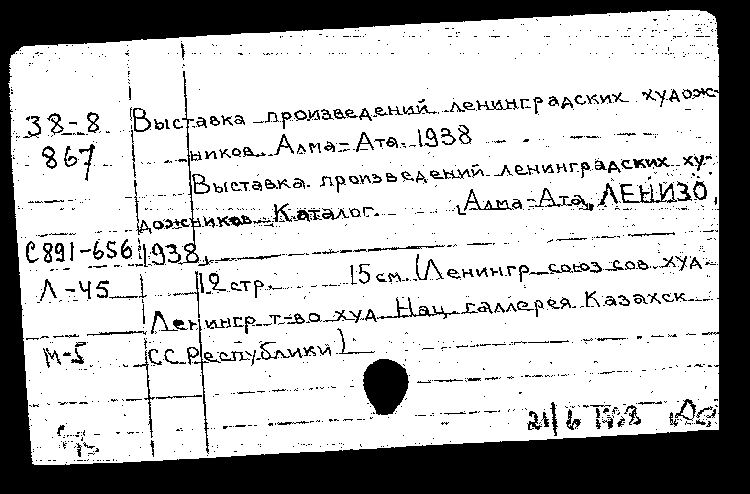 38-8 Выставка произведений ленинградских худож-
867 ников. Алма-Ата. 1938
Выставка произведений ленинградских ху-
дожников. Каталог. Алма-Ата, ЛЕНИЗО,
С891-656 1938.
Л-45 12 стр. 15 см (Ленингр союз сов худ
Ленингр т-во худ Нац. галлерея Казахск
М-5 ССРеспублики)
21/6 1938